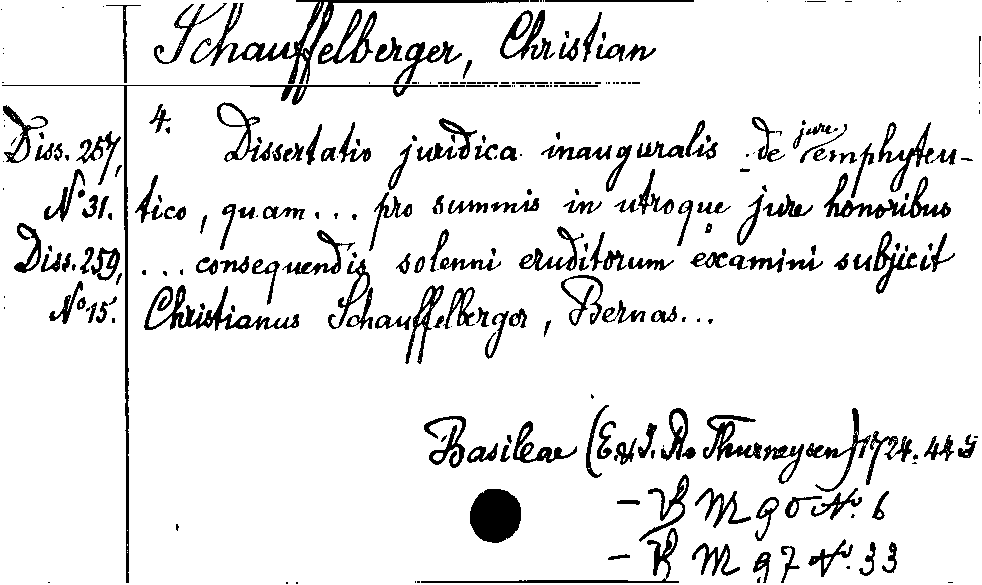 Schauffelberger, Christian
4.
Diss. 257, Dissertatio juridica inauguralis de jure emphyteu-
No 31. tico, quam... pro summis in utroque jure honoribus
Diss. 259, ... consequendis solenni eruditorum examini subjicit
No 15. Christianus Schauffelberger, Bernas...
Basileae (E. & J. R. Thurneysen) 1724. 44 S
- B M 90 No. 6
- B M 97 No. 33